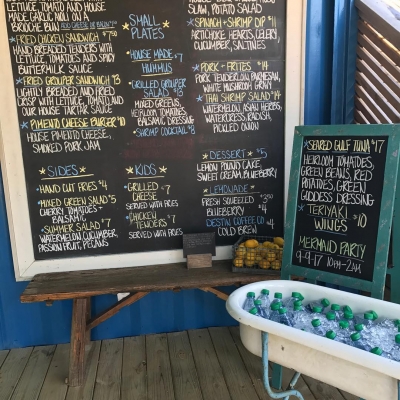 TOMATO AND HOUSE
MADE GARLIC AIOLI ON A
BRIOCHE BUN
*FRIED CHICKEN SANDWICH $7.50
HAND BREADED TENDERS WITH
LETTUCE, TOMATOES AND SPICY
BUTTERMILK SAUCE
*FRIED GROUPER SANDWICH $13
LIGHTLY BREADED AND FRIED
CRISP WITH LETTUCE, TOMATO AND
OUR HOUSE TARTAR SAUCE
*PIMENTO CHEESE BURGER $10
HOUSE PIMENTO CHEESE,
SMOKED PORK JAM
*SIDES*
HAND CUT FRIES $4
*MIXED GREEN SALAD $5
CHERRY TOMATOES +
BALSAMIC
*SUMMER SALAD $7
WATERMELON, CUCUMBER
PASSION FRUIT, PECANS
*SMALL
PLATES*
*HOUSE MADE $7
HUMMUS
*GRILLED GROUPER
SALAD $13
MIXED GREENS,
HEIRLOOM TOMATOES,
BALSAMIC DRESSING
*SHRIMP COCKTAIL $8
*KIDS*
*GRILLED $7
CHEESE
SERVED WITH FRIES
*CHICKEN $7
TENDERS
SERVED WITH FRIES
SLAW, POTATO SALAD
*SPINACH + SHRIMP DIP $11
ARTICHOKE HEARTS, CELERY
CUCUMBER, SALTINES
*PORK + FRITES $14
PORK TENDERLOIN, PARMESAN,
WHITE MUSHROOM GRAVY
*THAI SHRIMP SALAD $14
WATERMELON, ASIAN HERBS,
WATERCRESS, RADISH,
PICKLED ONION
*DESSERT* $5
LEMON POUND CAKE,
SWEET CREAM, BLUEBERRY
*LEMONADE*
FRESH SQUEEZED $3.50
BLUEBERRY $4
DESTIN COFFEE CO $4
COLD BREW
*SEARED GULF TUNA $17
HEIRLOOM TOMATOES,
GREEN BEANS, RED
POTATOES, GREEN
GODDESS DRESSING
*TERIYAKI
WINGS $10
MERMAID PARTY
9-9-17 10AM-2AM